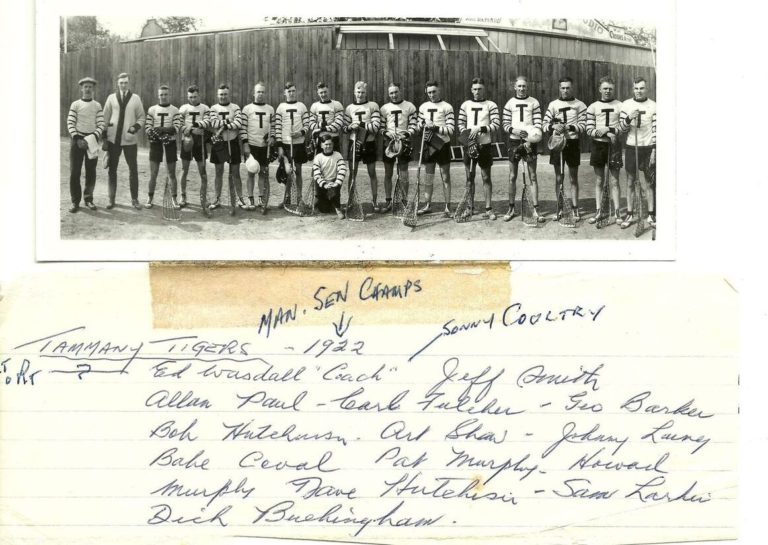 T T T T T T T T T T T T T
MAN. SEN CHAMPS
SONNY COULTRY
TAMMANY TIGERS - 1922
?
Ed Wasdall "Coach" Jeff Smith
Allan Paul - Carl Fulcher - Geo Barker
Bob Hutchinson. Art Shaw - Johnny
Babe Coval Pat Murphy - Howard
Murphy Dave Hutchison - Sam Larkin
Dick Buckingham.